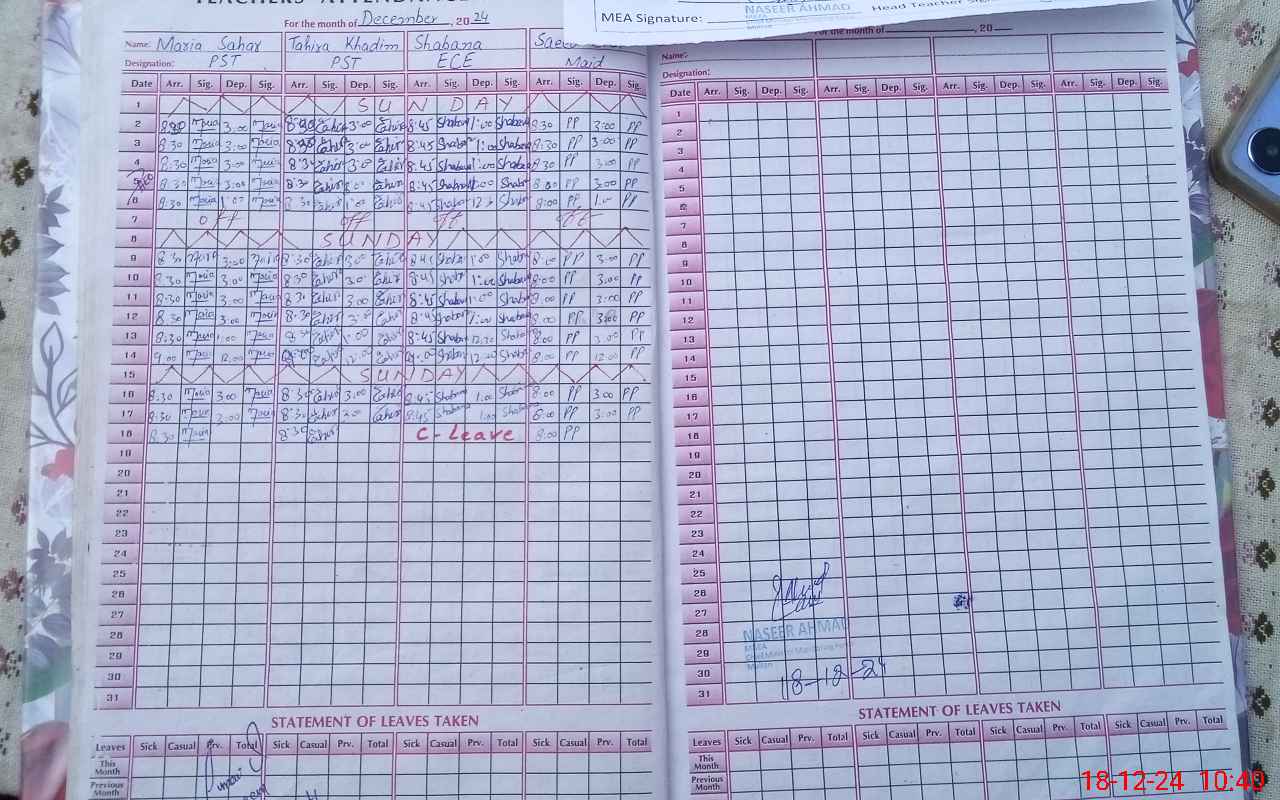 TEACHERS' ATTENDANCE
For the month of December, 2024
Name: Maria Sahar Tahira Khadim Shabana
Designation: PST PST ECE Maid
Date Arr. Sig. Dep. Sig. Arr. Sig. Dep. Sig. Arr. Sig. Dep. Sig. Arr. Sig. Dep. Sig.
1 SUNDAY
2 8:30 Maria 3:00 Maria 8:30 Tahira 3:00 Tahira 8:45 Shabana 1:00 Shabana 8:30 PP 3:00 PP
3 8:30 Maria 3:00 Maria 8:30 Tahira 3:00 Tahira 8:45 Shabana 1:00 Shabana 8:30 PP 3:00 PP
4 8:30 Maria 3:00 Maria 8:30 Tahira 3:00 Tahira 8:45 Shabana 1:00 Shabana 8:30 PP 3:00 PP
5 8:30 Maria 3:00 Maria 8:30 Tahira 3:00 Tahira 8:45 Shabana 1:00 Shaba 8:30 PP 3:00 PP
6 8:30 Maria 1:00 Maria 8:30 Tahira 1:00 Tahira 8:45 Shabana 12:30 Shaba 8:00 PP 1:00 PP
7 off off off off
8 SUNDAY
9 8:30 Maria 3:00 Maria 8:30 Tahira 3:00 Tahira 8:45 Shaba 1:00 Shaba 8:00 PP 3:00 PP
10 8:30 Maria 3:00 Maria 8:30 Tahira 3:00 Tahira 8:45 Shaba 1:00 Shaba 8:00 PP 3:00 PP
11 8:30 Maria 3:00 Maria 8:30 Tahira 3:00 Tahira 8:45 Shabana 1:00 Shaba 8:00 PP 3:00 PP
12 8:30 Maria 3:00 Maria 8:30 Tahira 3:00 Tahira 8:45 Shabana 1:00 Shabana 8:00 PP 3:00 PP
13 8:30 Maria 1:00 Maria 8:30 Tahira 1:00 Tahira 8:45 Shabana 12:30 Shaba 8:00 PP 3:00 PP
14 9:00 Maria 12:00 Maria 9:00 Tahira 12:00 Tahira 9:00 Shabana 12:00 Shaba 8:00 PP 12:00 PP
15 SUNDAY
16 8:30 Maria 3:00 Maria 8:30 Tahira 3:00 Tahira 8:45 Shabana 1:00 Shaba 8:00 PP 3:00 PP
17 8:30 Maria 3:00 Maria 8:30 Tahira 3:00 Tahira 8:45 Shabana 1:00 Shabana 8:00 PP 3:00 PP
18 8:30 Maria 8:30 Tahira C-Leave 8:00 PP
19
20
21
22
23
24
25
26
27
28
29
30
31
STATEMENT OF LEAVES TAKEN
Leaves Sick Casual Prv. Total Sick Casual Prv. Total Sick Casual Prv. Total Sick Casual Prv. Total
This Month
Previous Month
MEA Signature:
NASEER AHMAD
Head Teacher
For the month of , 20
Name:
Designation:
Date Arr. Sig. Dep. Sig. Arr. Sig. Dep. Sig. Arr. Sig. Dep. Sig. Arr. Sig. Dep. Sig.
1
2
3
4
5
6
7
8
9
10
11
12
13
14
15
16
17
18
19
20
21
22
23
24
25
26
27
28
29
30
31
NASEER AHMAD
MEA
Chief Minister Monitoring Force
Multan
18-12-24
STATEMENT OF LEAVES TAKEN
Leaves Sick Casual Prv. Total Sick Casual Prv. Total Sick Casual Prv. Total Sick Casual Prv. Total
This Month
Previous Month
18-12-24 10:40